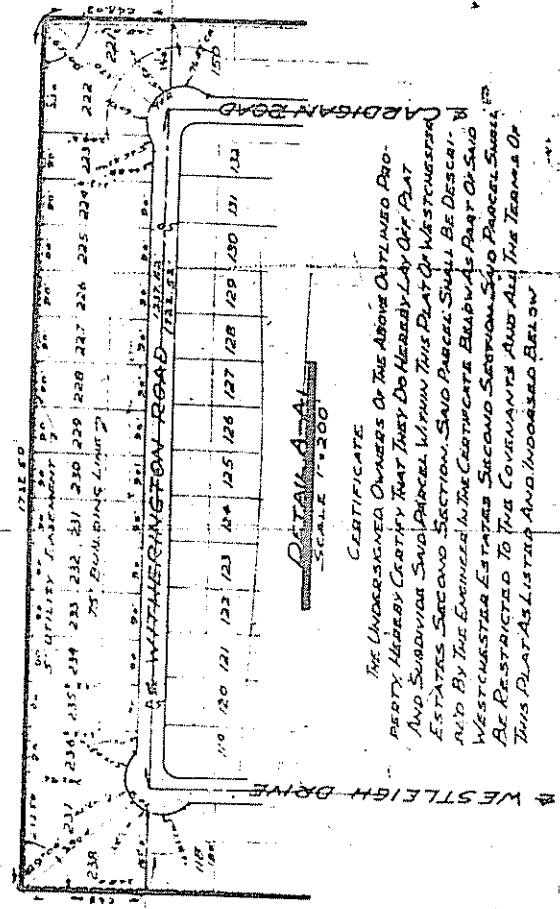 1722.50
5' UTILITY EASEMENT
238 237 236 235 234 233 232 231 230 229 228 227 226 225 224 223 222 221
75' BUILDING LINE
WITHERINGTON ROAD
1722.52'
118 119 120 121 122 123 124 125 126 127 128 129 130 131 132 150
WESTLEIGH DRIVE
CARDIGAN ROAD
DETAIL A-A1
SCALE 1"=200'
CERTIFICATE
THE UNDERSIGNED OWNERS OF THE ABOVE OUTLINED PRO-
PERTY, HEREBY CERTIFY THAT THEY DO HEREBY LAY OFF PLAT
AND SUBDIVIDE SAID PARCEL WITHIN THIS PLAT OF WESTCHESTER
ESTATES SECOND SECTION. SAID PARCEL SHALL BE DESCRI-
BED BY THE ENGINEER IN THE CERTIFICATE BELOW AS PART OF SAID
WESTCHESTER ESTATES SECOND SECTION. SAID PARCEL SHALL
BE RESTRICTED TO THE COVENANTS AND ALL THE TERMS OF
THIS PLAT AS LISTED AND INDORSED BELOW